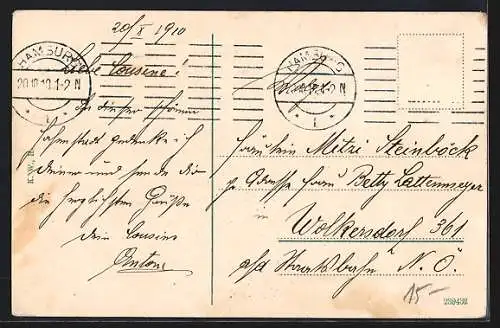 20/X 1910
HAMBURG
20.10.10.1-2 N
* 1 *
HAMBURG
20.10.10.1-2 N
* 1 *
Liebe Cousine!
In dieser schönen
Hafenstadt gedenke ich
deiner und sende dir
die herzlichsten Grüße
dein Cousin
Anton
K.W.H.
Fräulein Mitzi Steinböck
pr Adresse Frau Betty
in
Wolkersdorf 361
a/d Staatsbahn N. Ö.
15-